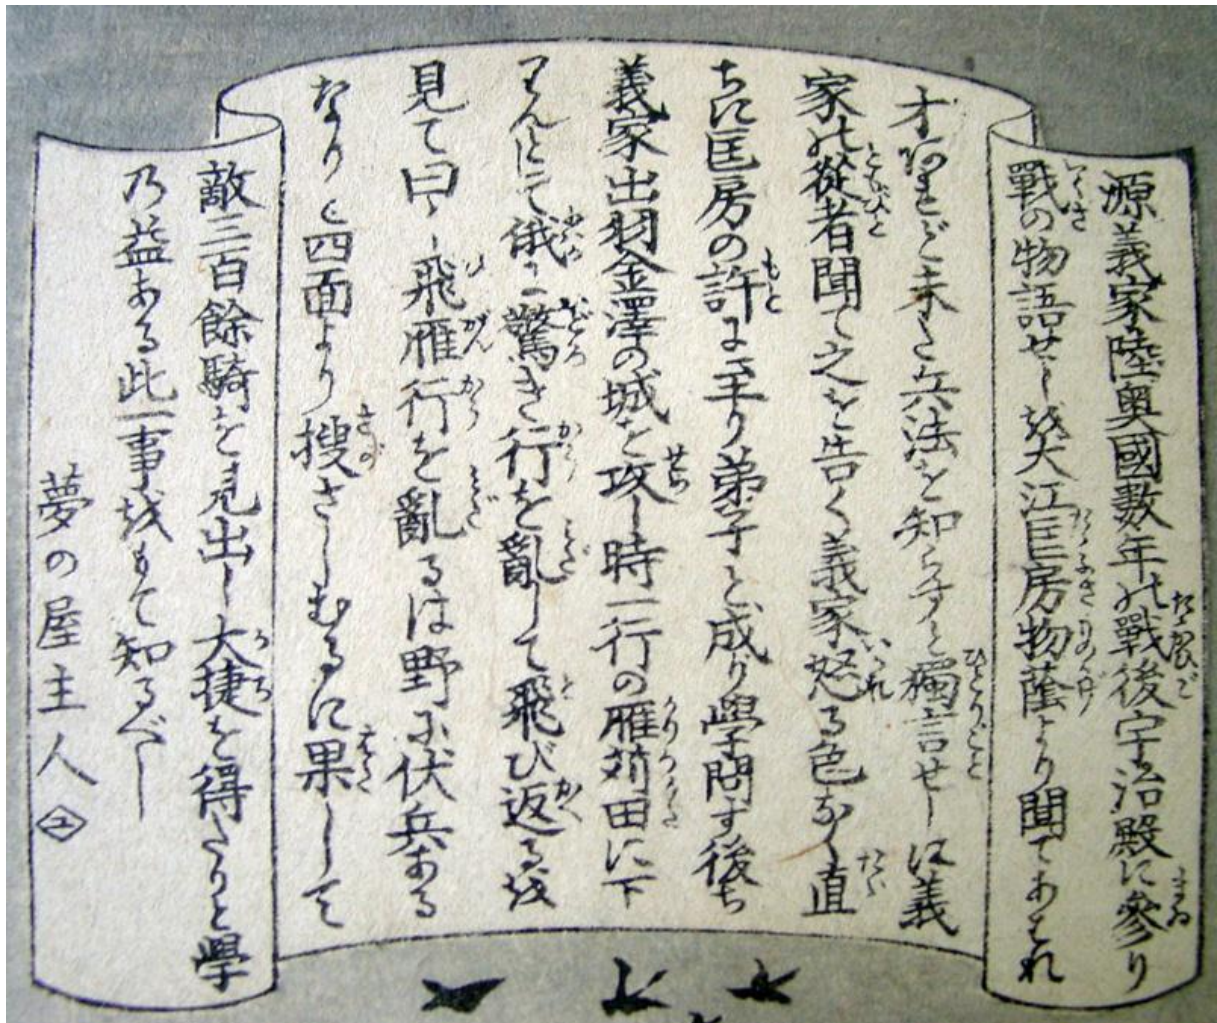 源義家陸奥國数年の戰後宇治殿に參り
戰の物語せしを大江匡房物蔭より聞てあはれ
才あれど未だ兵法を知らずと獨言せしは義
家の從者聞て之を告く義家怒る色なく直
ちに匡房の許に至り弟子と成り學問す後ち
義家出羽金澤の城を攻し時一行の雁苅田に下
りんとして俄に驚き行を亂して飛び返るを
見て曰く飛雁行を亂るは野に伏兵ある
なりと四面より搜さしむるに果して
敵三百餘騎を見出し大捷を得たりと學
乃益ある此一事をもて知るべし
夢の屋主人